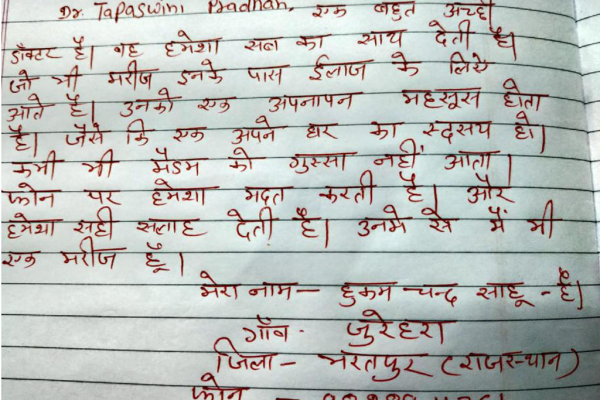 Dr. Tapaswini Pradhan, एक बहुत अच्छी
डॉक्टर है। वह हमेशा सब का साथ देती है।
जो भी मरीज इनके पास ईलाज के लिये
आते है। उनको एक अपनापन महसूस होता
है। जैसे कि एक अपने घर का सदस्य हो।
कभी भी मैडम को गुस्सा नहीं आता।
फोन पर हमेशा मदत करती है। और
हमेशा सही सलाह देती है। उनमे से मैं भी
एक मरीज हूँ।
मेरा नाम - हुकम चन्द साहू - है।
गाँव - जुरेहरा
जिला - भरतपुर (राजस्थान)
फोन -